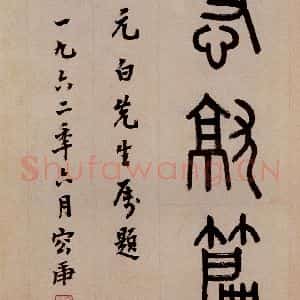 急就篇
元白先生属题
一九六二年六月容庚
Shufawang.CN